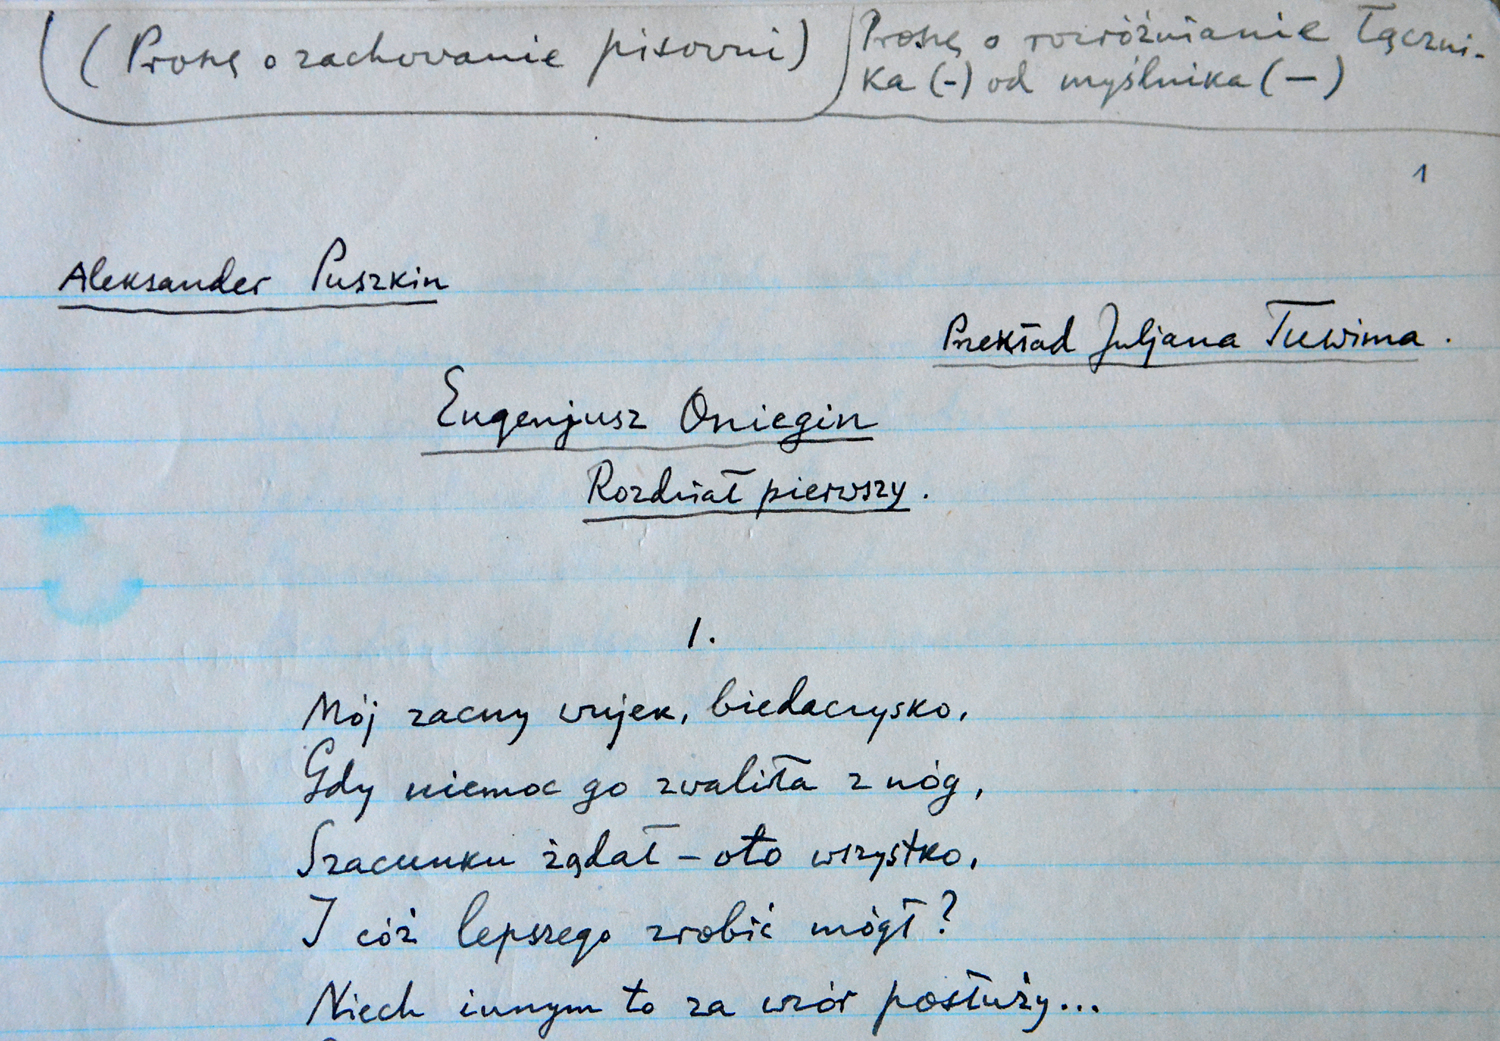 (Proszę o zachowanie pisowni)
Proszę o rozróżnianie łączni-
ka (-) od myślnika (—)
1
Aleksander Puszkin
Przekład Juljana Tuwima.
Eugenjusz Oniegin
Rozdział pierwszy.
1.
Mój zacny wujek, biedaczysko,
Gdy niemoc go zwaliła z nóg,
Szacunku żądał – oto wszystko,
I cóż lepszego zrobić mógł?
Niech innym to za wzór posłuży...